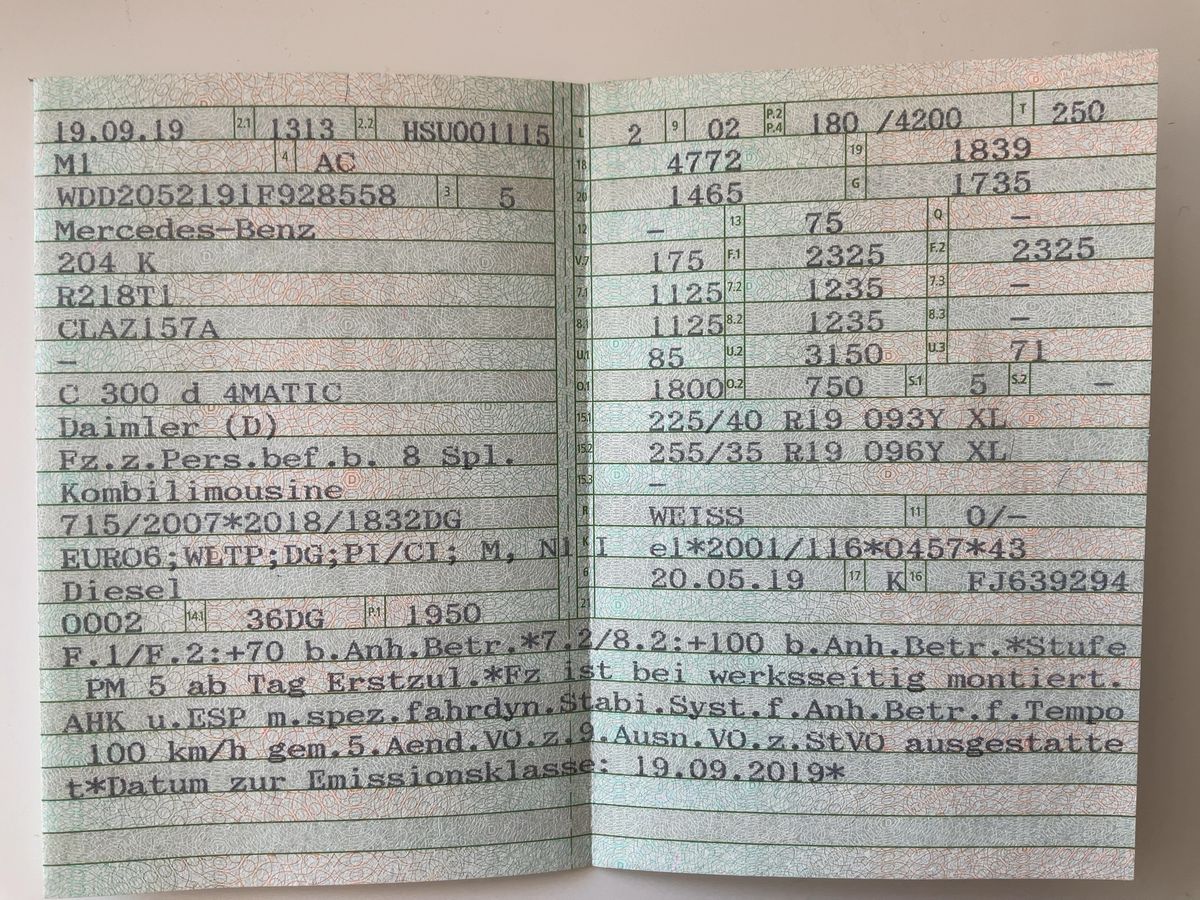 19.09.19 2.1 1313 2.2 HSU001115 L 2 9 02 P.2 P.4 180 /4200 T 250
M1 4 AC 18 4772 19 1839
WDD2052191F928558 3 5 20 1465 G 1735
Mercedes-Benz 12 – 13 75 Q –
204 K V.7 175 F.1 2325 F.2 2325
R218T1 7.1 1125 7.2 1235 7.3 –
CLAZ157A 8.1 1125 8.2 1235 8.3 –
– U.1 85 U.2 3150 U.3 71
C 300 d 4MATIC O.1 1800 O.2 750 S.1 5 S.2 –
Daimler (D) 15.1 225/40 R19 093Y XL
Fz.z.Pers.bef.b. 8 Spl. 15.2 255/35 R19 096Y XL
Kombilimousine 15.3 –
715/2007*2018/1832DG R WEISS 11 0/–
EURO6;WLTP;DG;PI/CI; M, N1 I K e1*2001/116*0457*43
Diesel 6 20.05.19 17 K 16 FJ639294
0002 14.1 36DG P.1 1950 21
F.1/F.2:+70 b.Anh.Betr.*7.2/8.2:+100 b.Anh.Betr.*Stufe
PM 5 ab Tag Erstzul.*Fz ist bei werksseitig montiert.
AHK u.ESP m.spez.fahrdyn.Stabi.Syst.f.Anh.Betr.f.Tempo
100 km/h gem.5.Aend.VO.z.9.Ausn.VO.z.StVO ausgestatte
t*Datum zur Emissionsklasse: 19.09.2019*